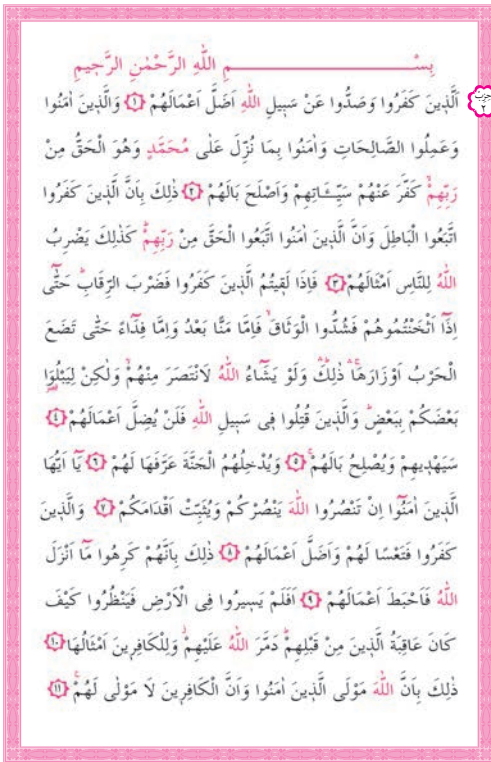 بِسْــــــــــــــــــــمِ اللّٰهِ الرَّحْمٰنِ الرَّحٖيمِ
اَلَّذٖينَ كَفَرُوا وَصَدُّوا عَنْ سَبٖيلِ اللّٰهِ اَضَلَّ اَعْمَالَهُمْ ﴿١﴾ وَالَّذٖينَ اٰمَنُوا
وَعَمِلُوا الصَّالِحَاتِ وَاٰمَنُوا بِمَا نُزِّلَ عَلٰى مُحَمَّدٍ وَهُوَ الْحَقُّ مِنْ
رَبِّهِمْۙ كَفَّرَ عَنْهُمْ سَيِّـَٔاتِهِمْ وَاَصْلَحَ بَالَهُمْ ﴿٢﴾ ذٰلِكَ بِاَنَّ الَّذٖينَ كَفَرُوا
اتَّبَعُوا الْبَاطِلَ وَاَنَّ الَّذٖينَ اٰمَنُوا اتَّبَعُوا الْحَقَّ مِنْ رَبِّهِمْؕ كَذٰلِكَ يَضْرِبُ
اللّٰهُ لِلنَّاسِ اَمْثَالَهُمْ ﴿٣﴾ فَاِذَا لَقٖيتُمُ الَّذٖينَ كَفَرُوا فَضَرْبَ الرِّقَابِؕ حَتّٰٓى
اِذَٓا اَثْخَنْتُمُوهُمْ فَشُدُّوا الْوَثَاقَۙ فَاِمَّا مَنًّا بَعْدُ وَاِمَّا فِدَٓاءً حَتّٰى تَضَعَ
الْحَرْبُ اَوْزَارَهَاۚ ذٰلِكَؕ وَلَوْ يَشَٓاءُ اللّٰهُ لَانْتَصَرَ مِنْهُمْۙ وَلٰكِنْ لِيَبْلُوَا۬
بَعْضَكُمْ بِبَعْضٍؕ وَالَّذٖينَ قُتِلُوا فٖى سَبٖيلِ اللّٰهِ فَلَنْ يُضِلَّ اَعْمَالَهُمْ ﴿٤﴾
سَيَهْدٖيهِمْ وَيُصْلِحُ بَالَهُمْۚ ﴿٥﴾ وَيُدْخِلُهُمُ الْجَنَّةَ عَرَّفَهَا لَهُمْ ﴿٦﴾ يَٓا اَيُّهَا
الَّذٖينَ اٰمَنُٓوا اِنْ تَنْصُرُوا اللّٰهَ يَنْصُرْكُمْ وَيُثَبِّتْ اَقْدَامَكُمْ ﴿٧﴾ وَالَّذٖينَ
كَفَرُوا فَتَعْسًا لَهُمْ وَاَضَلَّ اَعْمَالَهُمْ ﴿٨﴾ ذٰلِكَ بِاَنَّهُمْ كَرِهُوا مَٓا اَنْزَلَ
اللّٰهُ فَاَحْبَطَ اَعْمَالَهُمْ ﴿٩﴾ اَفَلَمْ يَسٖيرُوا فِى الْاَرْضِ فَيَنْظُرُوا كَيْفَ
كَانَ عَاقِبَةُ الَّذٖينَ مِنْ قَبْلِهِمْؕ دَمَّرَ اللّٰهُ عَلَيْهِمْؗ وَلِلْكَافِرٖينَ اَمْثَالُهَا ﴿١٠﴾
ذٰلِكَ بِاَنَّ اللّٰهَ مَوْلَى الَّذٖينَ اٰمَنُوا وَاَنَّ الْكَافِرٖينَ لَا مَوْلٰى لَهُمْ۟ ﴿١١﴾